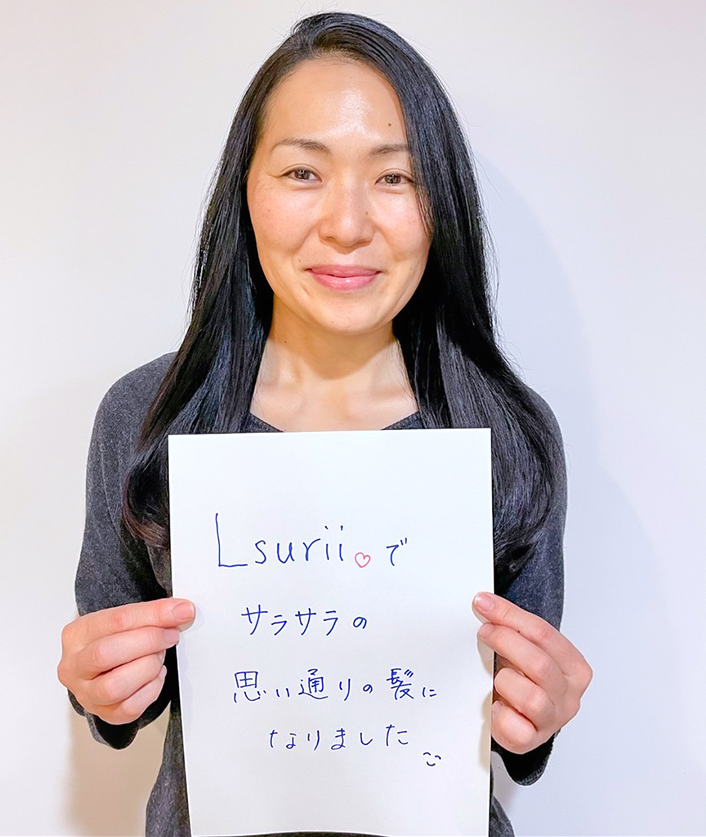 Lsurii♡で
サラサラの
思い通りの髪に
なりました